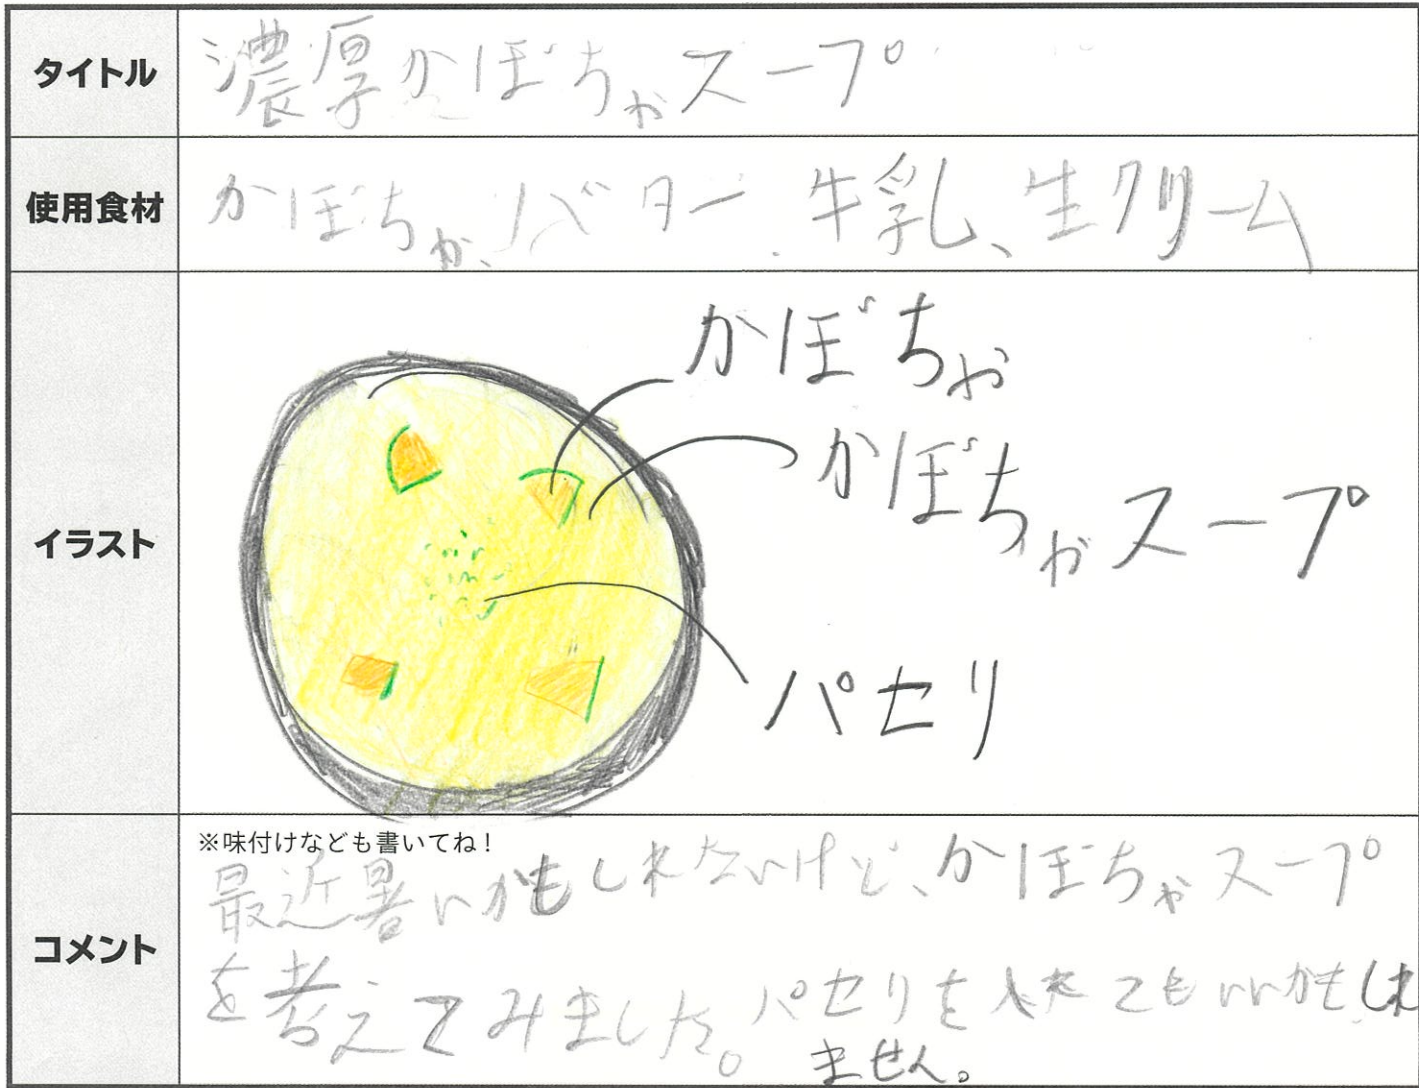 タイトル
濃厚かぼちゃスープ
使用食材
かぼちゃ、バター、牛乳、生クリーム
イラスト
かぼちゃ
かぼちゃスープ
パセリ
コメント
※味付けなども書いてね！
最近暑いかもしれないけど、かぼちゃスープ
を考えてみました。パセリを入れてもいいかもしれ
ません。